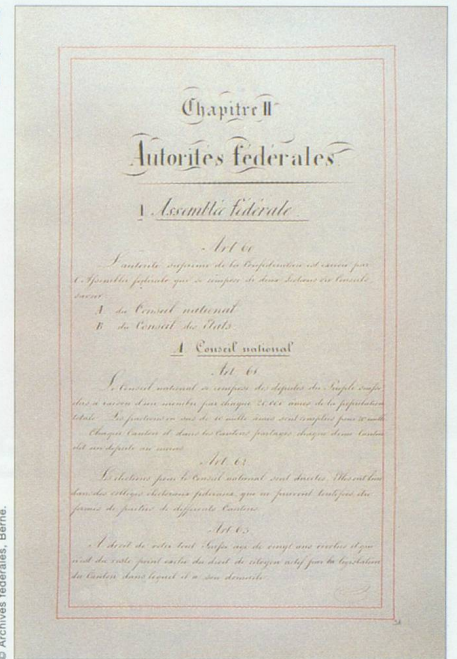 Chapitre II
Autorités fédérales.
I Assemblée fédérale.
Art 60
L'autorité suprême de la Confédération est exercée par
l'Assemblée fédérale qui se compose de deux Sections ou Conseils,
savoir:
A du Conseil national
B du Conseil des Etats.
A Conseil national
Art. 61.
Le Conseil national se compose des députés du Peuple suisse
élus à raison d'un membre par chaque 20,000 âmes de la population
totale. Les fractions en sus de 10 mille âmes sont comptées pour 20 mille.
Chaque Canton et, dans les Cantons partagés, chaque demi Canton
élit un député au moins.
Art. 62.
Les élections pour le Conseil national sont directes. Elles ont lieu
dans des collèges électoraux fédéraux, qui ne peuvent toutefois être
formés de parties de différents Cantons.
Art. 63
A droit de voter tout Suisse âgé de vingt ans révolus et qui
n'est du reste point exclu du droit de citoyen actif par la législation
du Canton dans lequel il a son domicile.
© Archives fédérales, Berne.